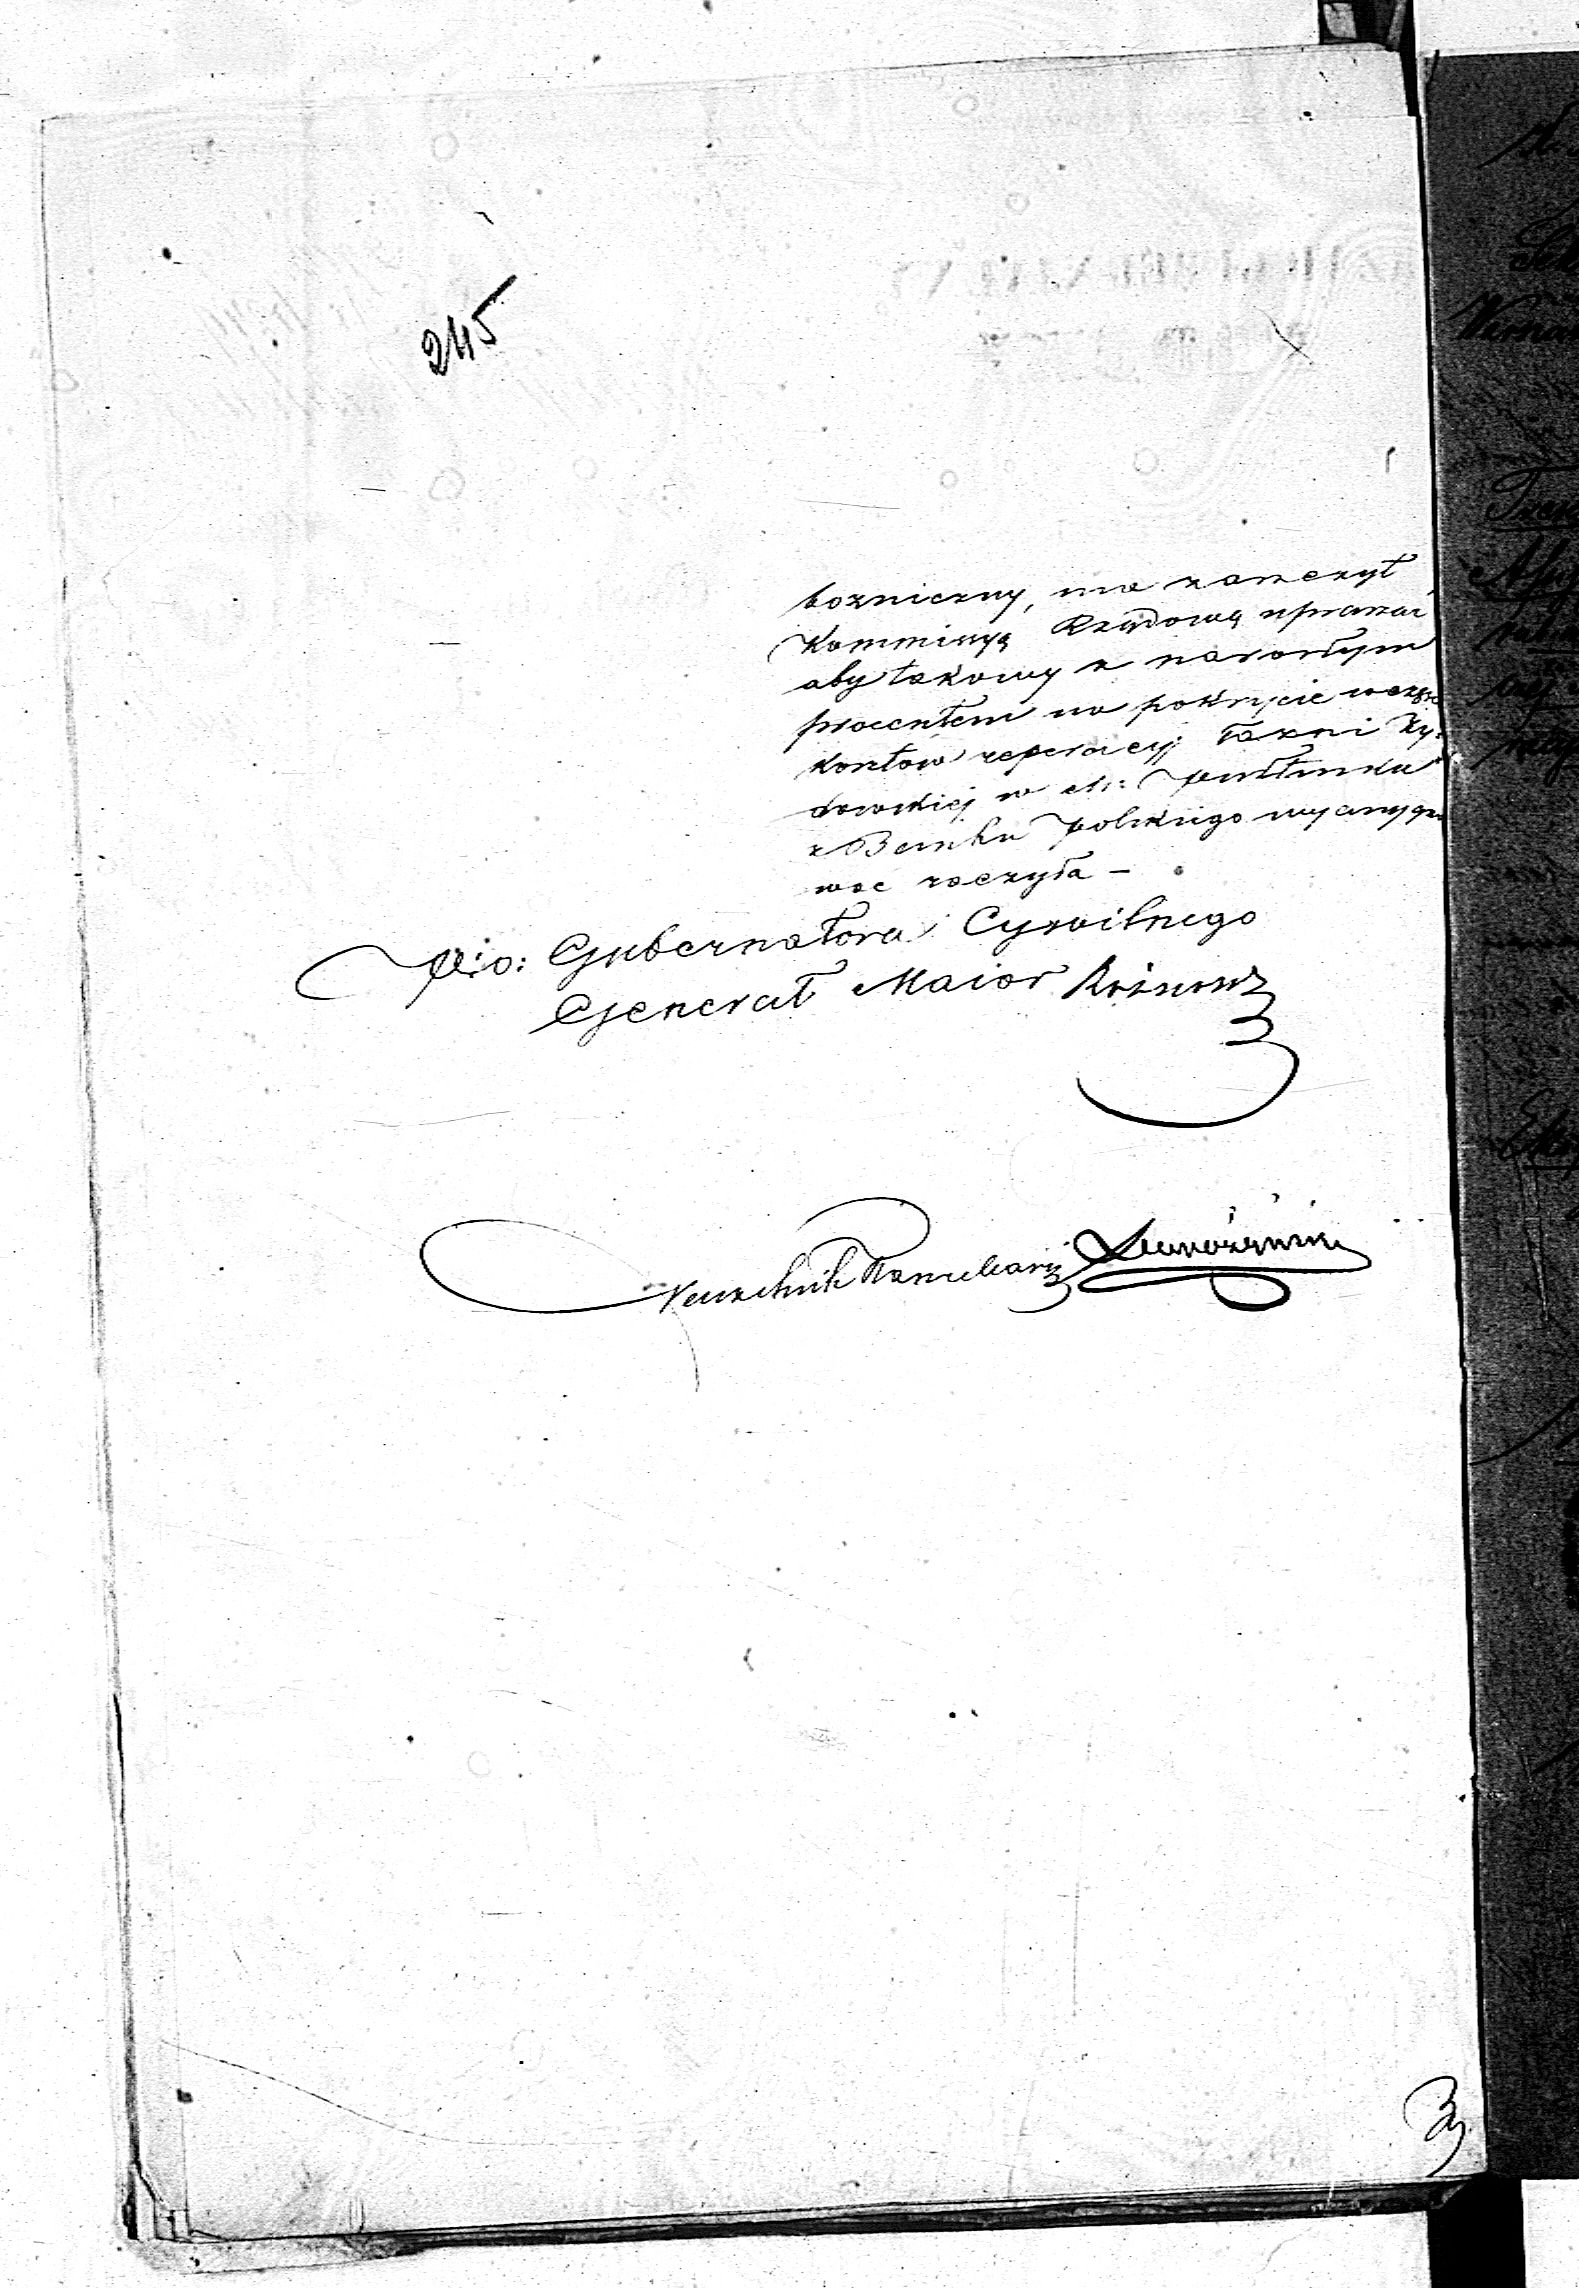 245
bozniczny, ma zaszczyt
Kommissyą Rządową upraszać
aby takowy z narosłym
procentem na pokrycie
kosztów reperacyi Łazni Ży-
dowskiej w M: Pułtusku
z Banku Polskiego wyassygno
wać raczyła —
p.o: Gubernatora Cywilnego
Generał Maior
Naczelnik Kancellaryi